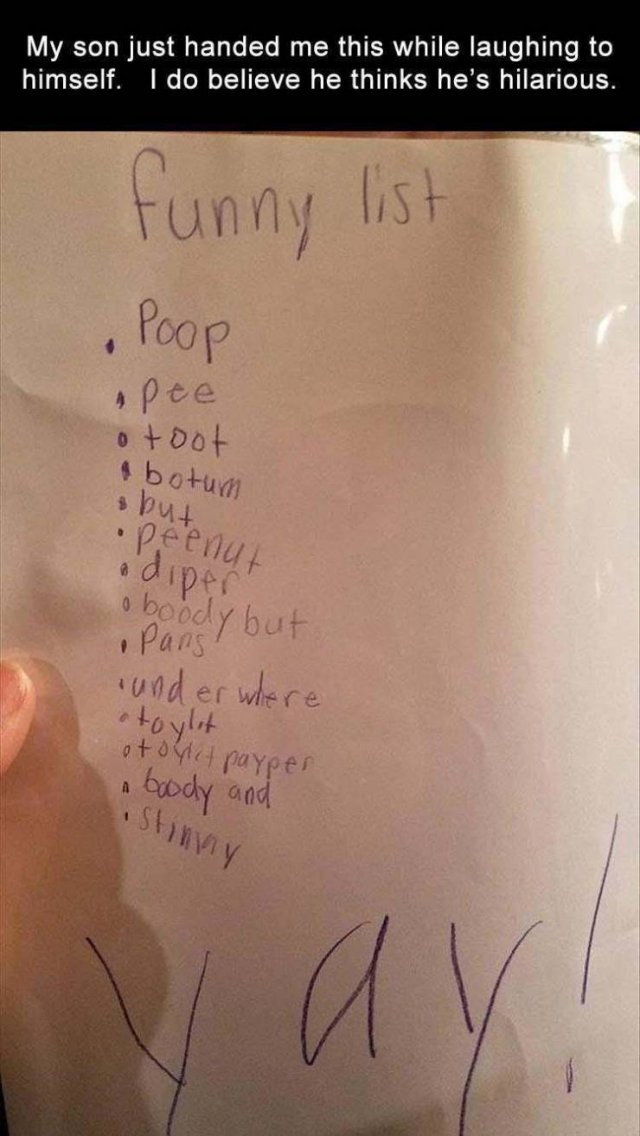 My son just handed me this while laughing to
himself. I do believe he thinks he's hilarious.
funny list
• Poop
• pee
• toot
• botum
• but
• peenut
• diper
• boody but
• Pans
• und er where
• toylit
• toylit payper
• boody and
• stinny
yay!